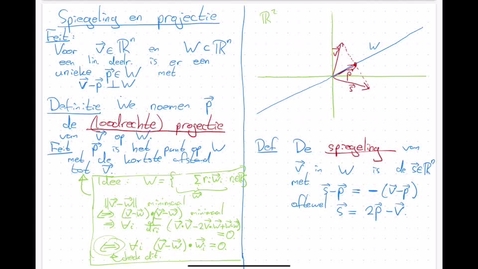 Spiegeling en projectie
Feit:
Voor v⃗ ∈ ℝⁿ en W ⊂ ℝⁿ
een lin deelr. is er een
unieke p⃗ ∈ W met
v⃗-p⃗ ⊥ W
Definitie We noemen p⃗
de (loodrechte) projectie
van v⃗ op W.
Feit p⃗ is het punt op W
met de kortste afstand
tot v⃗.
Idee: W = {
||v⃗-w⃗|| minimaal
⇔ (v⃗-w⃗)·(v⃗-w⃗) minimaal
= 0.
⇔ ∀i (v⃗-w⃗)·w⃗ᵢ = 0.
ℝ²
W
v⃗
p⃗
s⃗
Def De spiegeling van
v⃗ in W is de s⃗ ∈ ℝⁿ
met
s⃗-p⃗ = -(v⃗-p⃗)
oftewel
s⃗ = 2p⃗-v⃗.